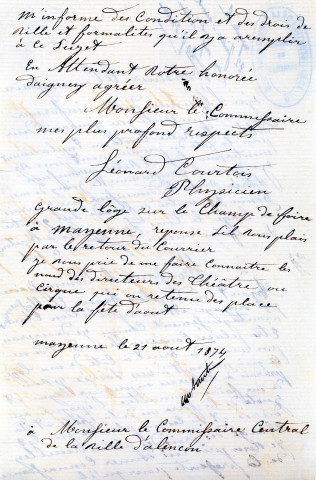 m'informe des Condition et des drois de
ville et formalites qu'il y a a remplir
à ce Sujet
En Attendant Votre honorée
daignez agréer
Monsieur le Commissaire
mes plus profond respects
Léonard Courtois
Physicien
Grande lôge sur le Champ de foire
à mayenne, reponse sil vous plais
par le retour du Courrier
je vous prie de me faire connaitre les
noms des directeurs des Théatre ou
cirque qui on retenu des place
pour la fete d'aout
mayenne le 21 aout 1874
à Monsieur le Commissaire Central
de la Ville d'alencon